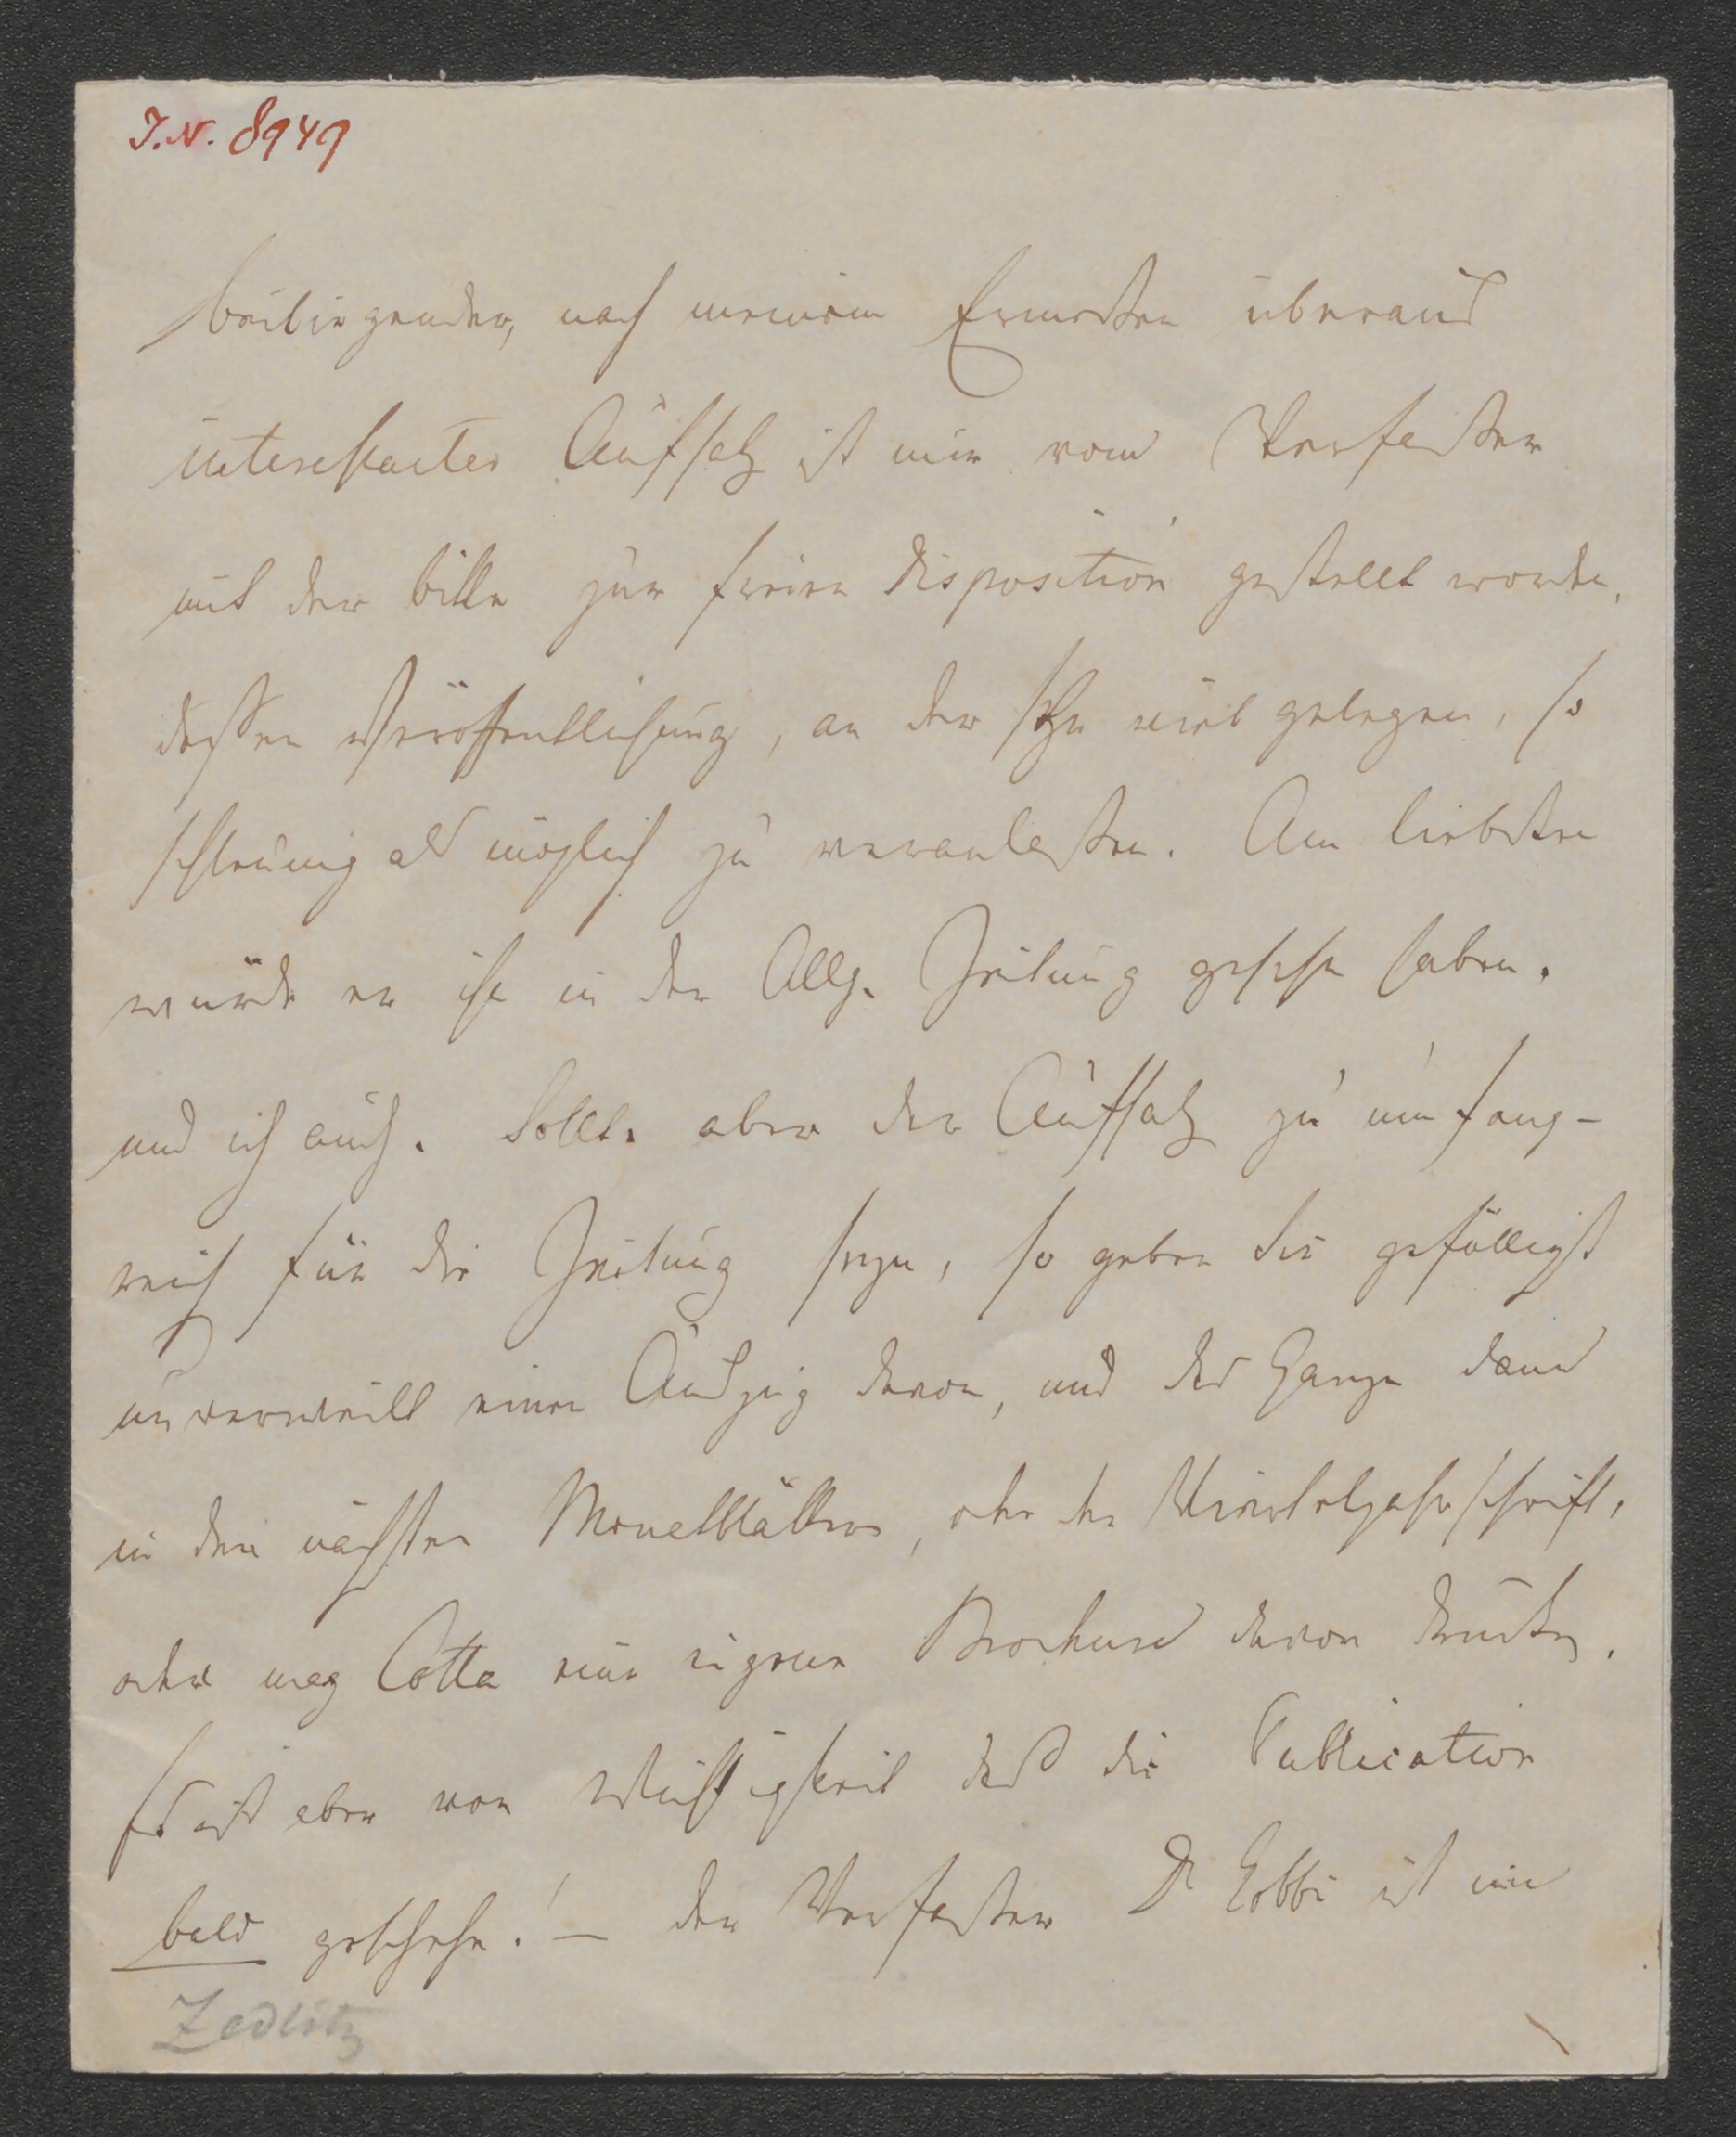 I.N. 8949
beiliegender, nach meinem Ermessen überaus
interessanter Aufsatz ist mir vom Verfasser
mit der bitte zur freien Disposition gestellt worden,
dessen Veröffentlichung, an der sehr viel gelegen, so
schleunig als möglich zu veranlassen. Am liebsten
würde er ihn in der Allg. Zeitung gesehen haben.
und ich auch. Sollte aber der Aufsatz zu umfang-
reich für die Zeitung seyn, so geben Sie gefälligst
unverweilt einen Auszug davon, und das Ganze dann
in den nächsten Monatblättern, oder der Vierteljahrschrift,
oder mag Cotta eine eigene Brochure davon drucken.
Es ist aber von Wichtigkeit daß die Publication
bald geschehe! – der Verfasser Dr Gobbi ist ein
Zedlitz